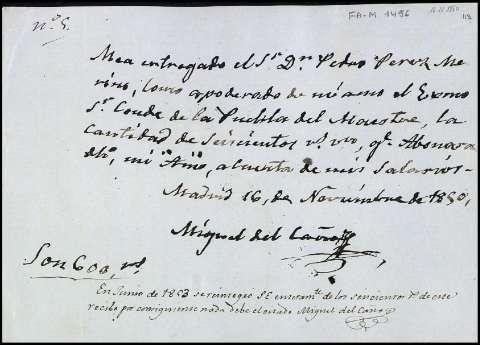 nº 5.
FA-M 1496
Mea entregado el Sr. Dn. Pedro Perez Me
rino, como apoderado de mi amo el Exmo
Sr. Conde de la Puebla del Maestre, la
Cantidad de Seicientos rs. vn, qe. Abonara
dho, mi Amo, a cuenta de mis Salarios-
Madrid 16, de Noviembre de 1850,
Miguel del Caño
Son 600, rs.
En Junio de 1853 se reintegró S.E. enteramte. de los seiscientos rs. de este
recibo por consiguiente nada debe el citado Miguel del Caño